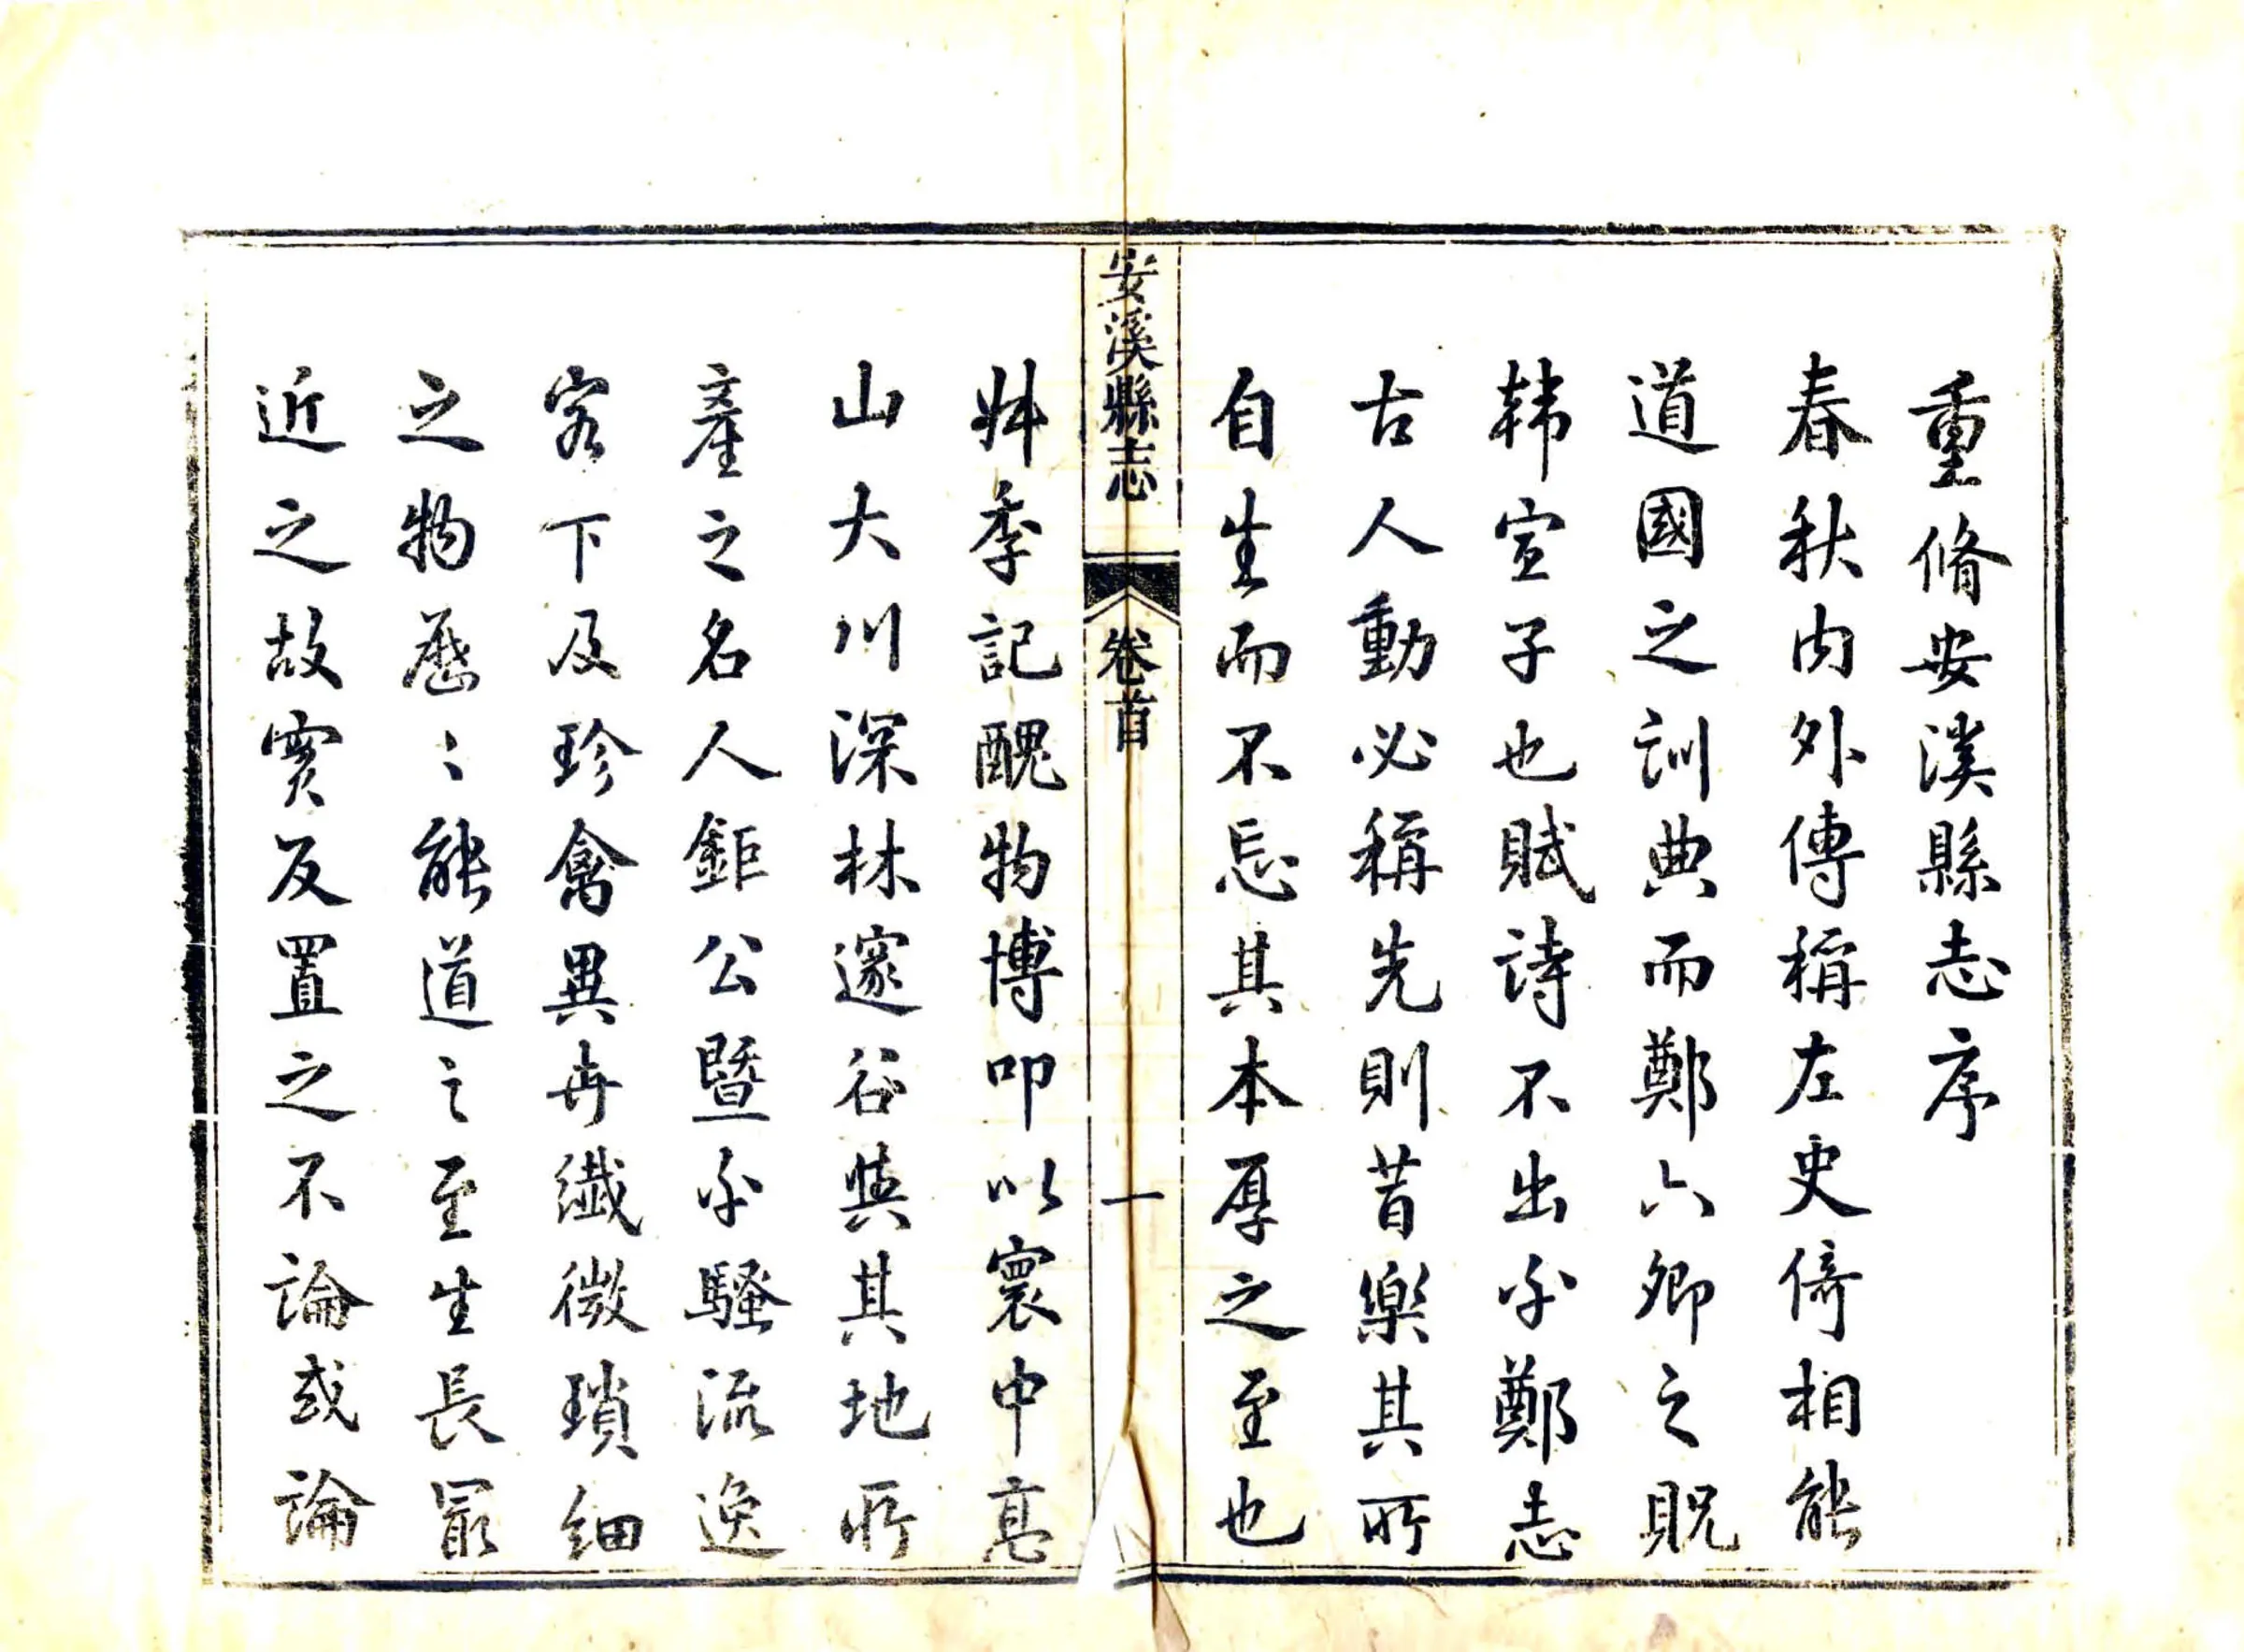 重脩安溪縣志序
春秋內外傳稱左史倚相能
道國之訓典而鄭六卿之貺
韩宣子也賦詩不出乎鄭志
古人動必稱先則昔樂其所
自生而不忘其本厚之至也
安溪縣志
卷首
一
季記醜物博叩以寰中高
山大川深林邃谷與其地所
產之名人鉅公暨乎騷流逸
客下及珍禽異卉纖微瑣細
之物歷〻能道之至生長最
近之故實反置之不論或論